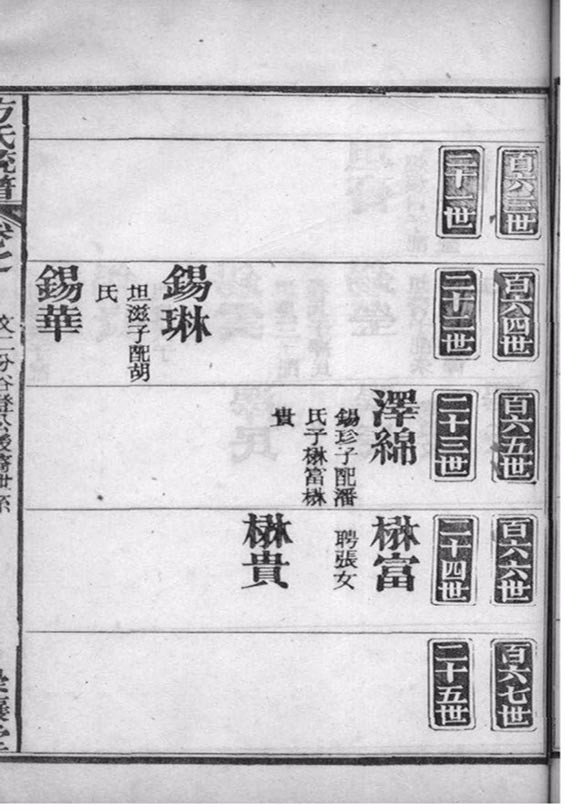 百六三世
二十一世
百六四世
二十二世
錫琳
坦滋子配胡
氏
錫華
百六五世
二十三世
澤綿
錫珍子配潘
氏子楙富楙
貴
百六六世
二十四世
楙富
聘張女
楙貴
百六七世
二十五世
方氏統譜